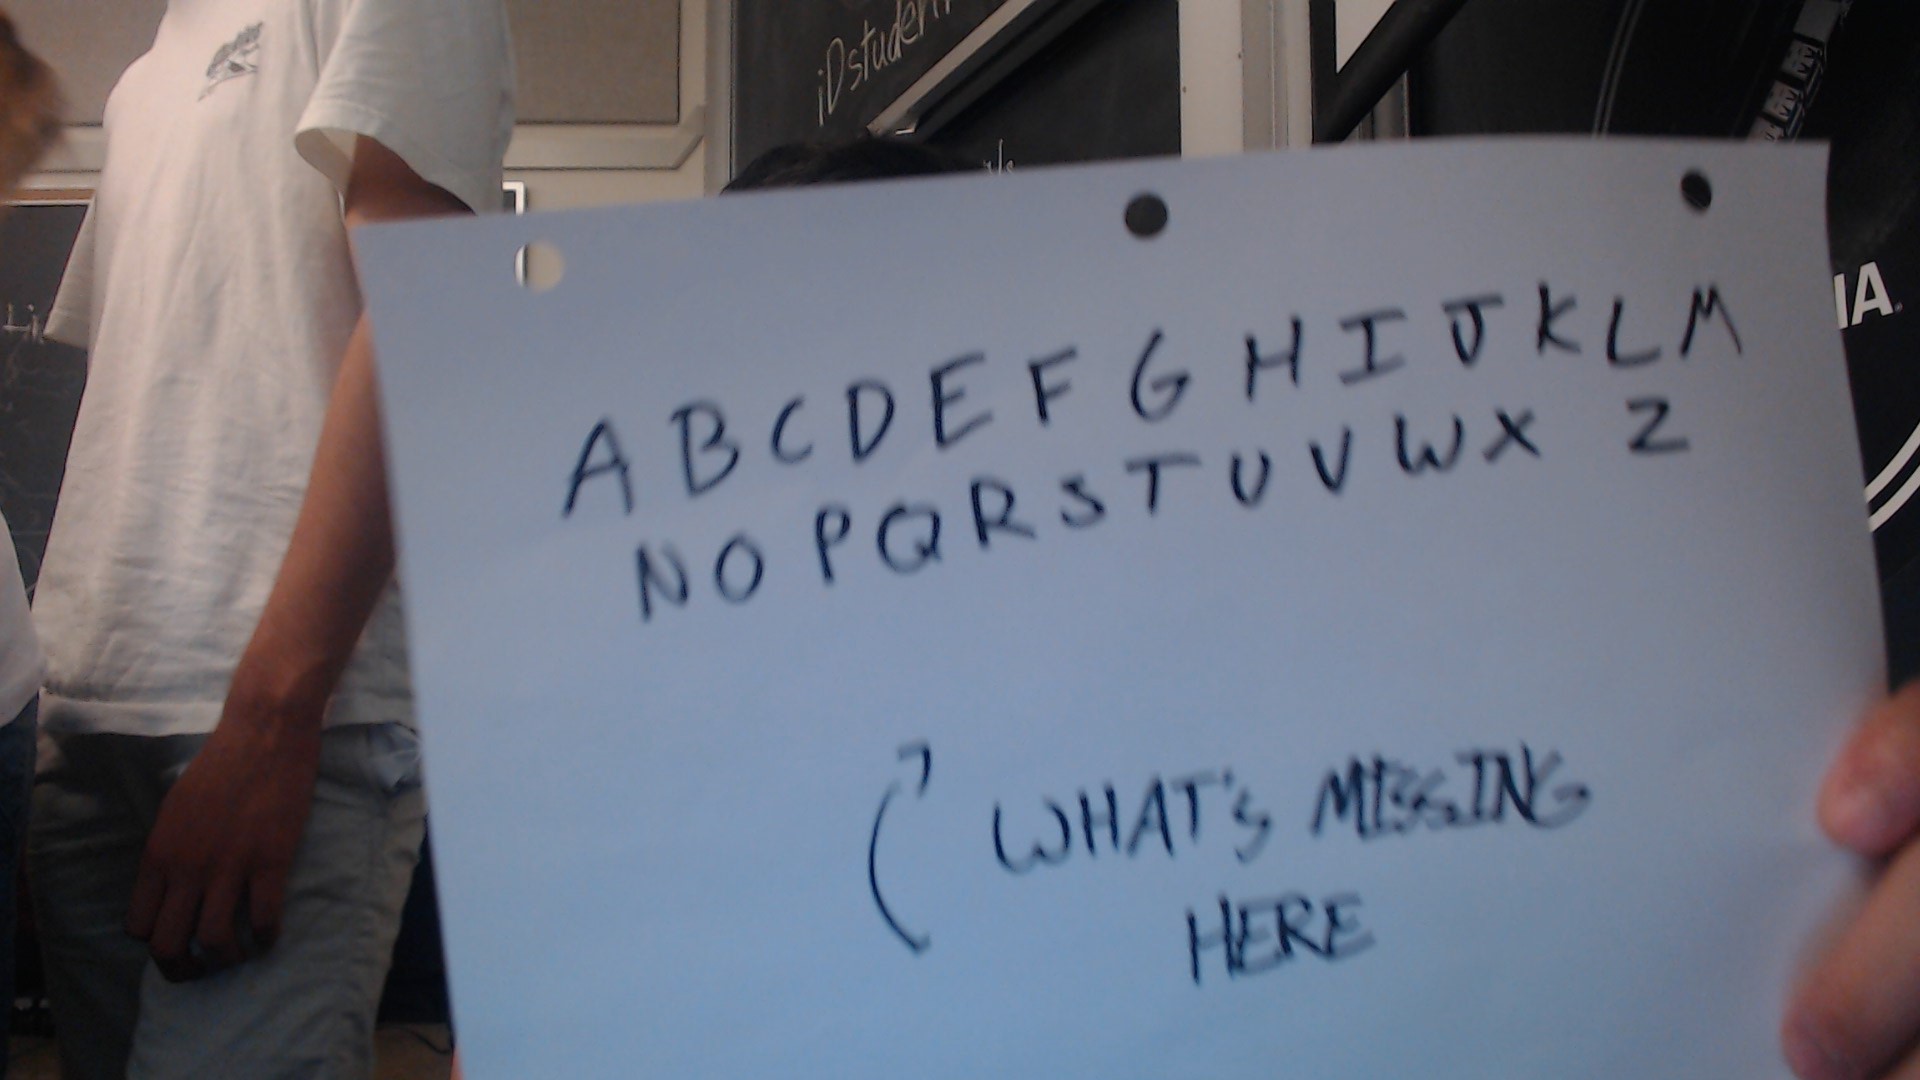 iDstuden
IA.
Hi
A B C D E F G H I J K L M
N O P Q R S T U V W X Z
WHAT'S MISSING
HERE